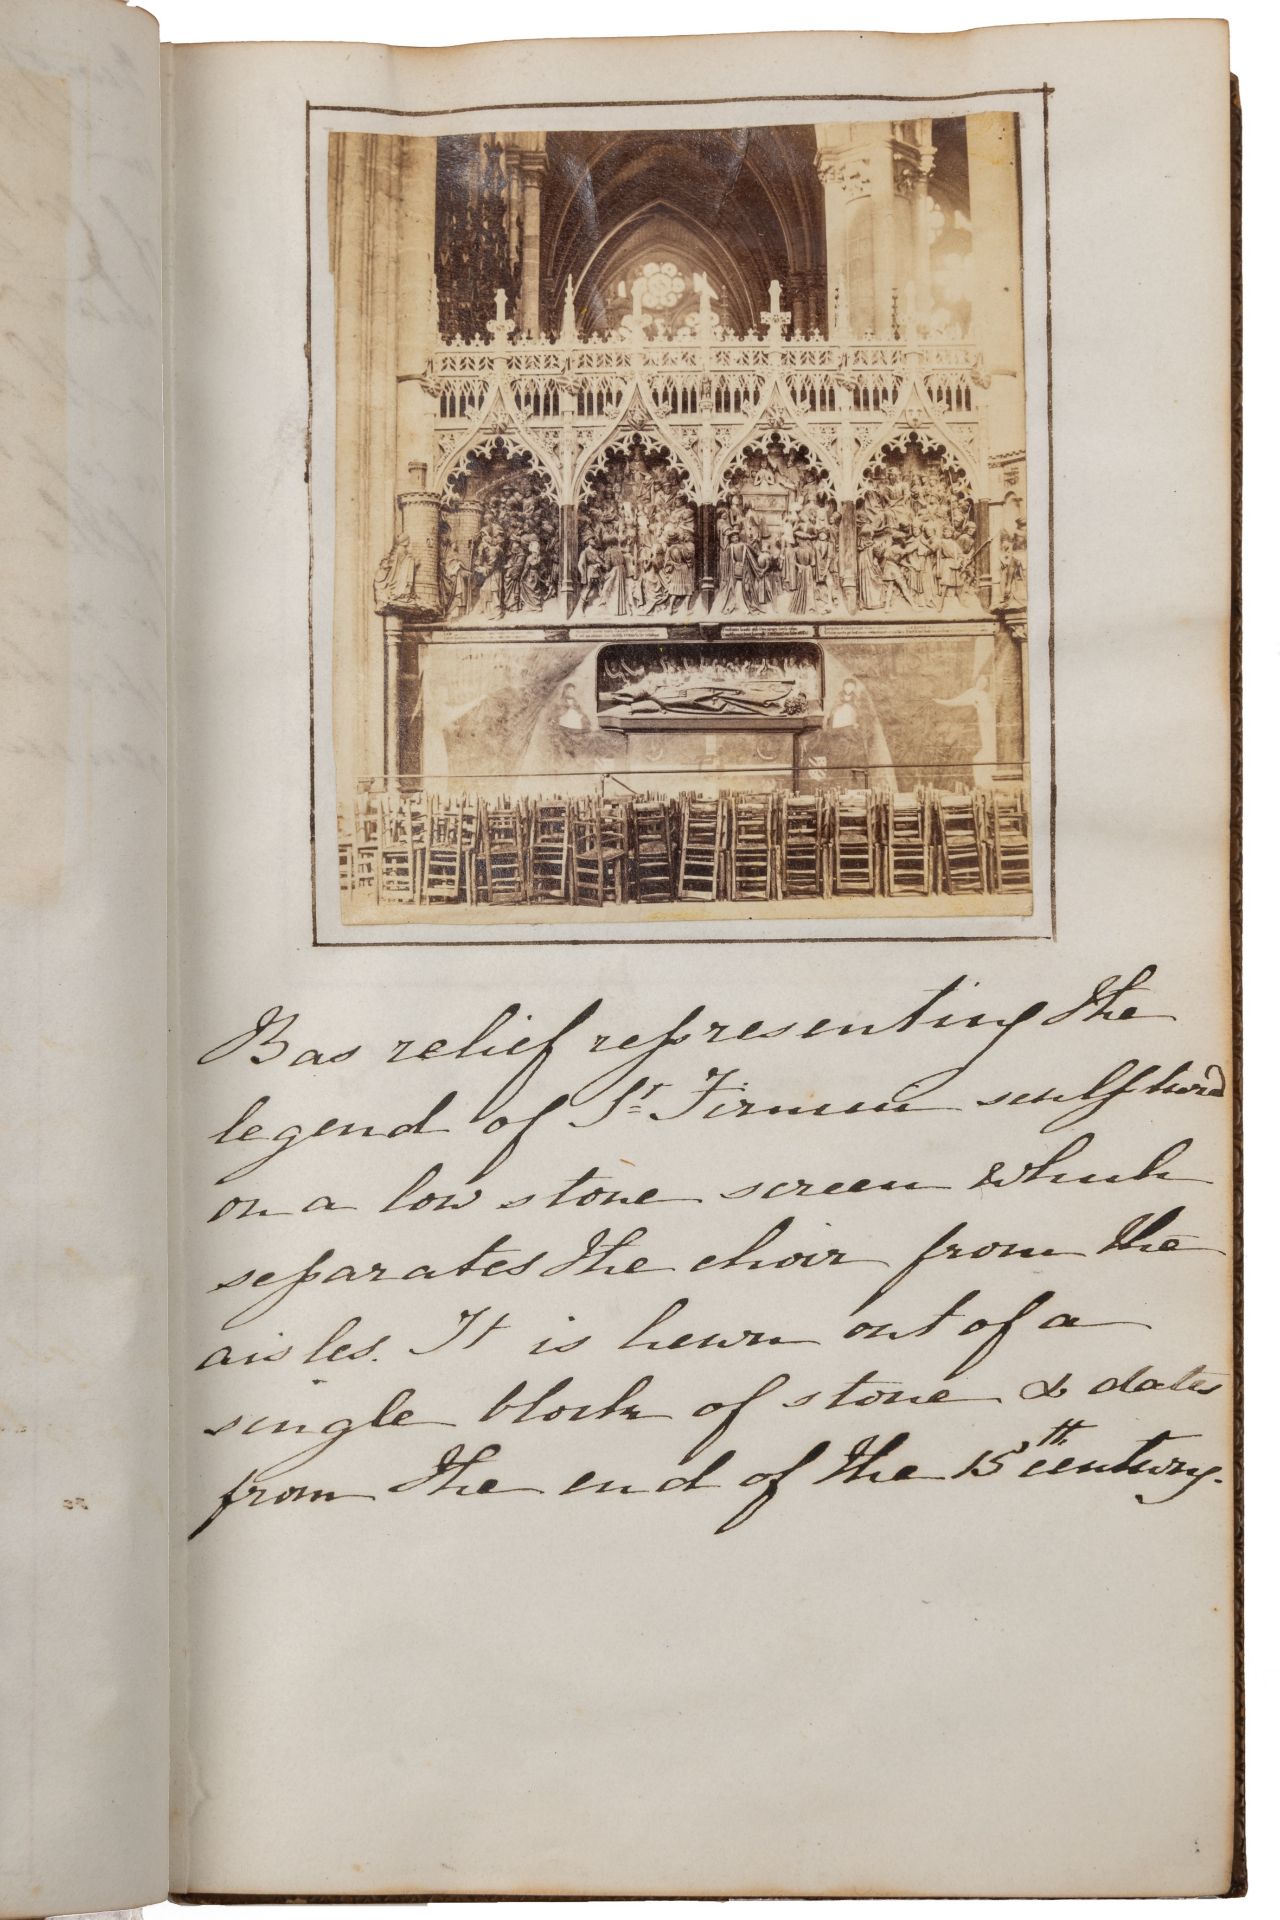 Bas relief representing the
legend of St. Firmin sculptured
on a low stone screen which
separates the choir from the
aisles. It is hewn out of a
single block of stone & dates
from the end of the 15th century.